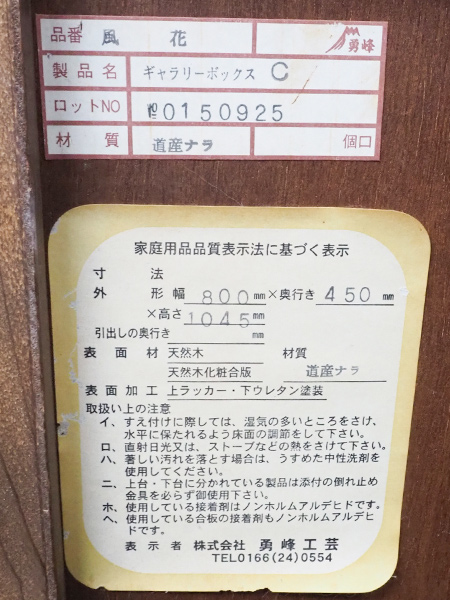 品番 風 花 勇峰
製品名 ギャラリーボックス C
ロットNO № 0150925
材 質 道産ナラ 個口
家庭用品品質表示法に基づく表示
寸 法
外 形 幅 800mm×奥行き 450mm
×高さ 1045mm
引出しの奥行き mm
表 面 材 天然木 材質
天然木化粧合版 道産ナラ
表 面 加 工 上ラッカー・下ウレタン塗装
取扱い上の注意
イ、すえ付けに際しては、湿気の多いところをさけ、
水平に保たれるよう床面の調節をして下さい。
ロ、直射日光又は、ストーブなどの熱をさけて下さい。
ハ、著しい汚れを落とす場合は、うすめた中性洗剤を
使用してください。
ニ、上台・下台に分かれている製品は添付の倒れ止め
金具を必らず御使用下さい。
ホ、使用している接着剤はノンホルムアルデヒドです。
ヘ、使用している合板の接着剤もノンホルムアルデヒ
ドです。
表 示 者 株式会社 勇峰工芸
TEL0166(24)0554